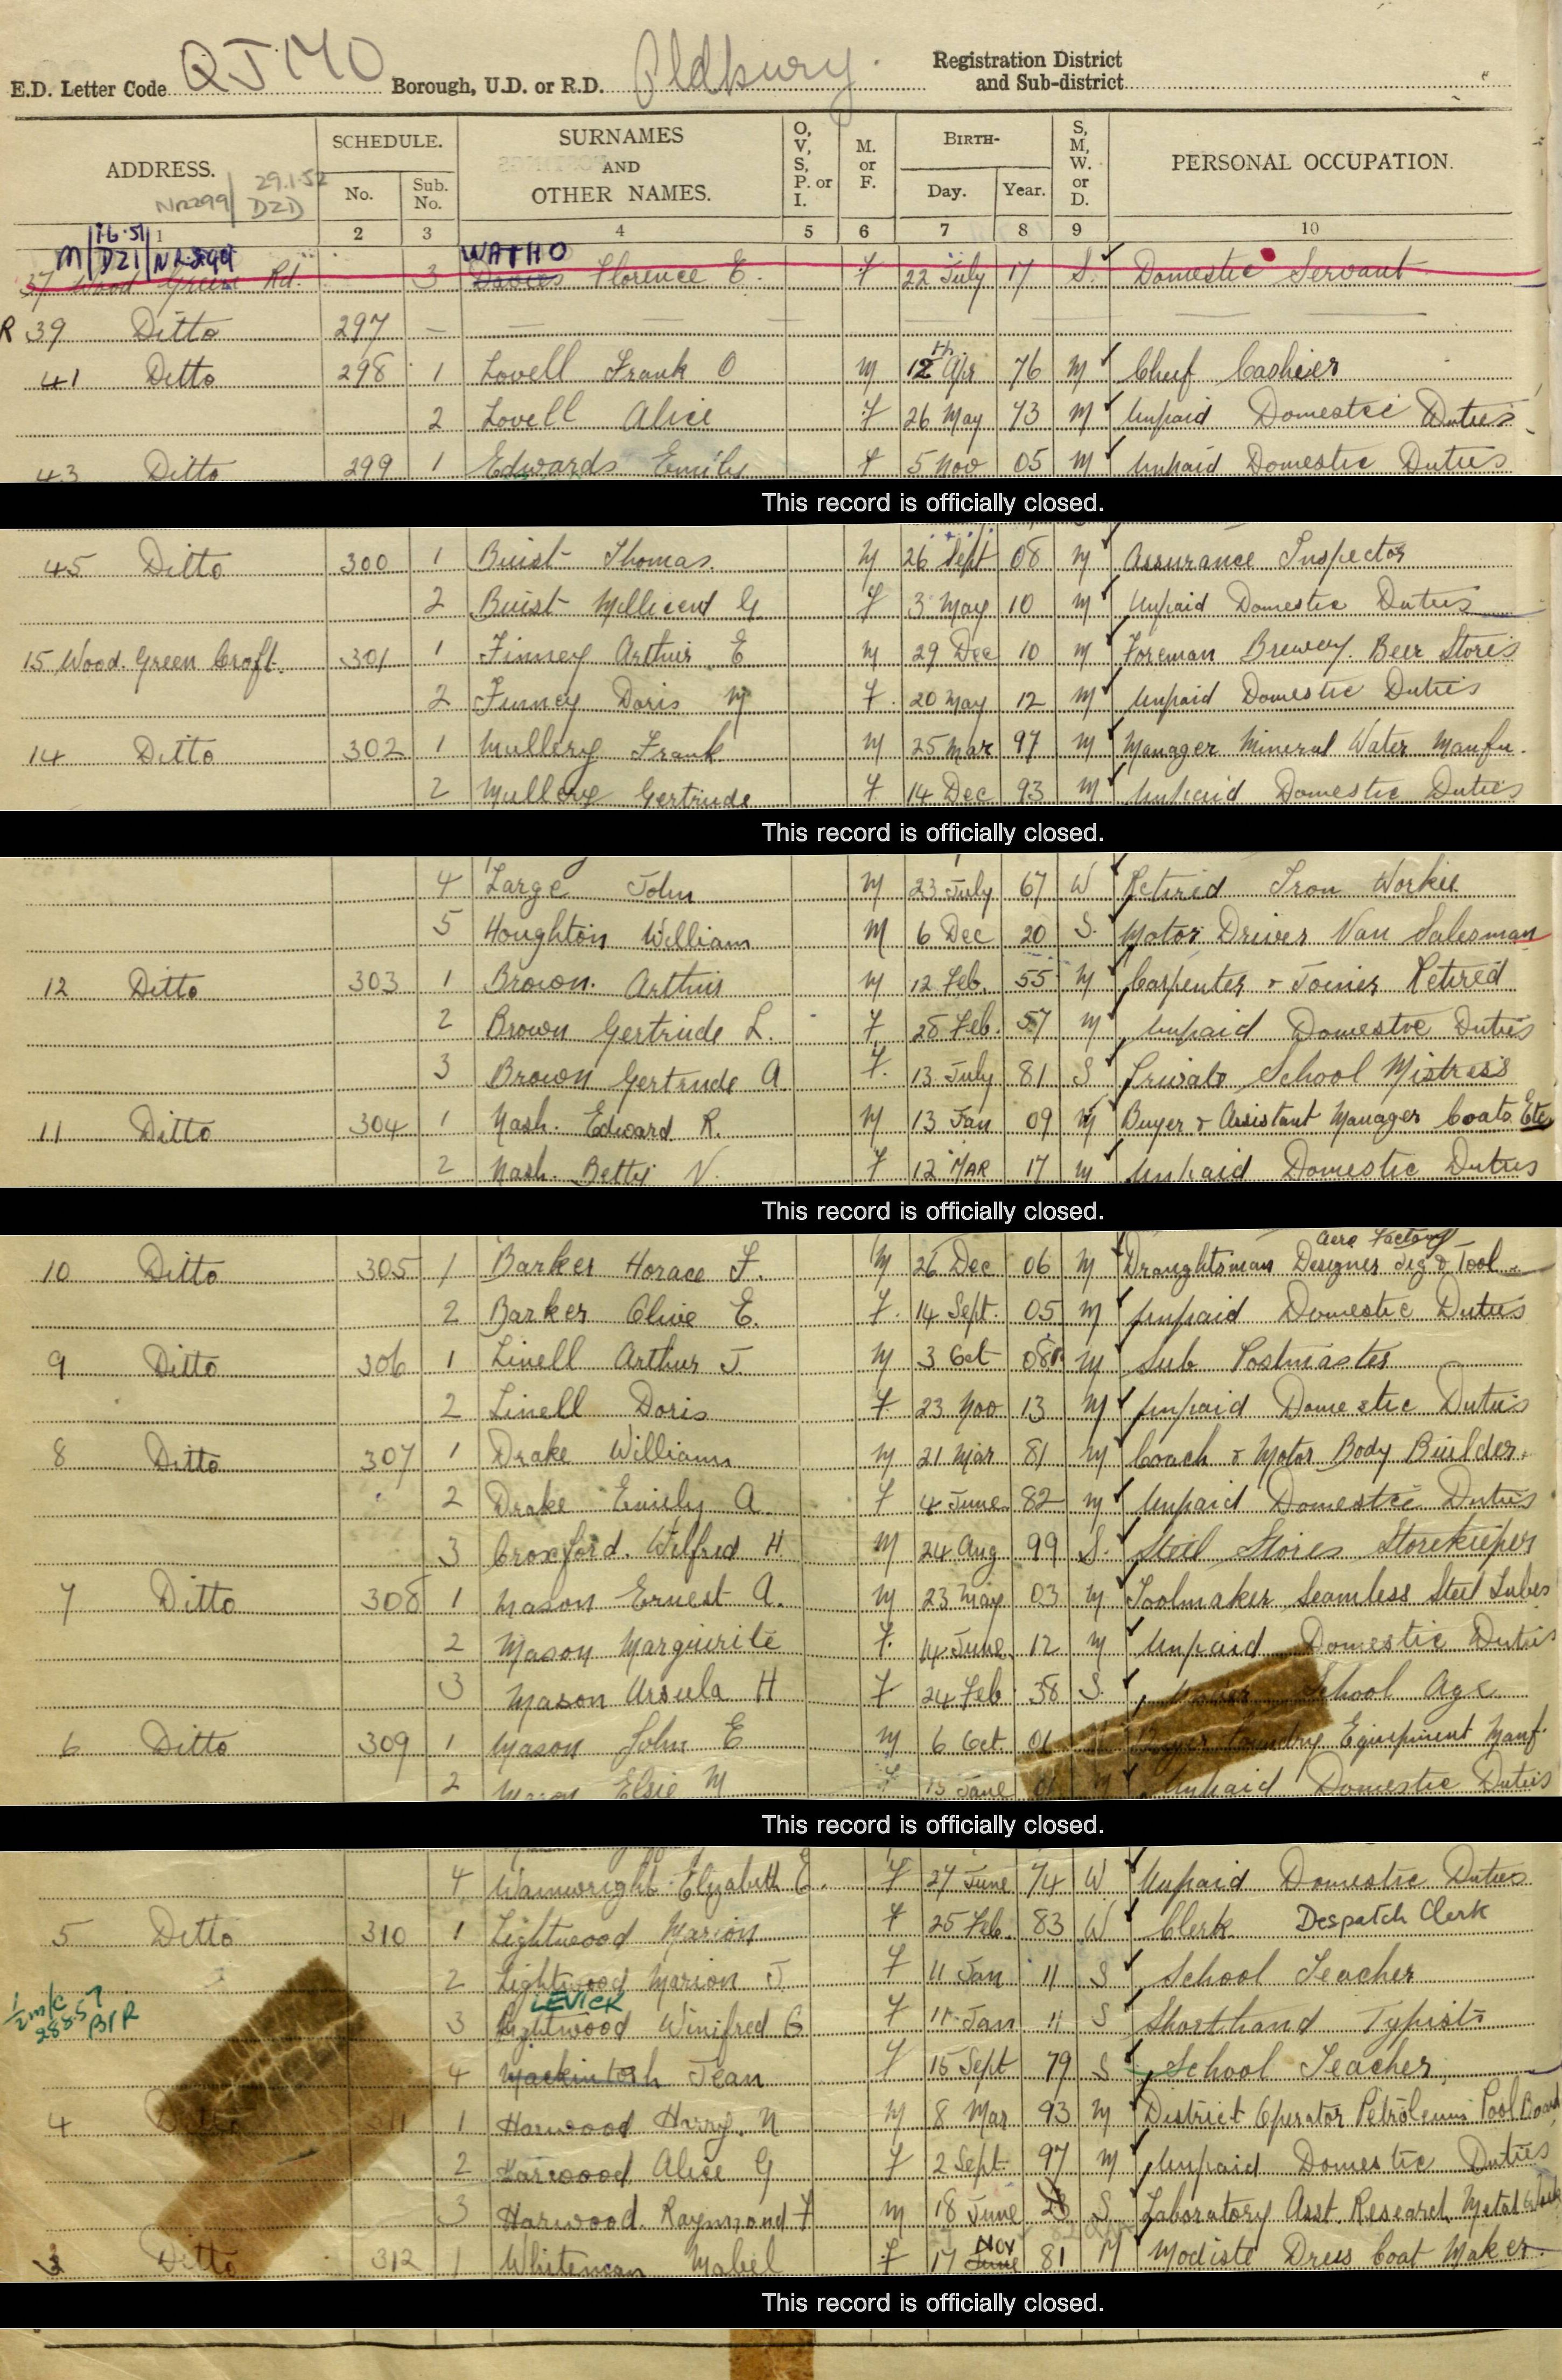 E.D. Letter Code QJMO Borough, U.D. or R.D. Oldbury. Registration District and Sub-district
ADDRESS. SCHEDULE. No. Sub. No. SURNAMES AND OTHER NAMES. O, V, S, P. or I. M. or F. BIRTH- Day. Year. S, M, W. or D. PERSONAL OCCUPATION.
NR299 29.1.52 DZD
1 2 3 4 5 6 7 8 9 10
M 16.51 DZI NR299 WATHO
37 Wood Green Rd. 3 Davies Florence E. F 22 July 17 S. Domestic Servant
R 39 Ditto 297 —
41 Ditto 298 1 Lovell Frank O M 12th Apr 76 M Chief Cashier
2 Lovell Alice F 26 May 73 M Unpaid Domestic Duties
43 Ditto 299 1 Edwards Emily F 5 Nov 05 M Unpaid Domestic Duties
This record is officially closed.
45 Ditto 300 1 Buist Thomas. M 26 Sept 08 M Assurance Inspector
2 Buist Millicent G F 3 May 10 M Unpaid Domestic Duties
15 Wood Green Croft. 301 1 Finney Arthur E M 29 Dec 10 M Foreman Brewery. Beer Stores
2 Finney Doris M F. 20 May 12 M Unpaid Domestic Duties
14 Ditto 302 1 Mullery Frank M 25 Mar 97 M Manager Mineral Water Manfu.
2 Mullery Gertrude F 14 Dec 93 M Unpaid Domestic Duties
This record is officially closed.
4 Large John M 23 July 67 W Retired Iron Worker
5 Houghton William M 6 Dec 20 S. Motor Driver Van Salesman
12 Ditto 303 1 Brown. Arthur M 12 Feb. 55 M Carpenter & Joiner Retired
2 Brown Gertrude L. F 28 Feb. 57 M Unpaid Domestic Duties
3 Brown Gertrude A F. 13 July 81 S Private School Mistress
11 Ditto 304 1 Nash. Edward R. M 13 Jan 09 M Buyer & Assistant Manager Coats Etc
2 Nash. Betty V. F 12 MAR 17 M Unpaid Domestic Duties
This record is officially closed.
Aero Factory
10 Ditto 305 1 Barker Horace F. M 26 Dec 06 M Draughtsman Designer Jig & Tool
2 Barker Olive E. F. 14 Sept. 05 M Unpaid Domestic Duties
9 Ditto 306 1 Linell Arthur J. M 3 Oct 08 M Sub Postmaster
2 Linell Doris F 23 Nov 13 M Unpaid Domestic Duties
8 Ditto 307 1 Drake William M 21 Mar 81 M Coach & Motor Body Builder.
2 Drake Emily A. F 4 June. 82 M Unpaid Domestic Duties
3 Croxford. Wilfred H M 24 Aug 99 S. Steel Stores Storekeeper
7 Ditto 308 1 Mason Ernest A. M 23 May 03 M Toolmaker Seamless Steel Tubes
2 Mason Marguerite F. 14 June. 12 M Unpaid Domestic Duties
3 Mason Ursula H F 24 Feb 38 S. Under School Age
6 Ditto 309 1 Mason John E M 6 Oct. 01 Foundry Equipment Manf.
2 Mason Elsie M F 13 June 01 M Unpaid Domestic Duties
This record is officially closed.
4 Wainwright Elizabeth E. F 27 June 74 W Unpaid Domestic Duties
5 Ditto 310 1 Lightwood Marion F 25 Feb. 83 W Clerk Despatch Clerk
2 Lightwood Marion J. F 11 Jan 11 S School Teacher
LEVICK
3 Lightwood Winifred G F 11 Jan 11 S Shorthand Typist
28857 BIR
4 Mackintosh Jean F 15 Sept 79 S School Teacher
4 Ditto 311 1 Harwood Harry. N M 8 Mar 93 M District Operator Petroleum Pool Board
2 Harwood Alice G F 2 Sept. 97 M Unpaid Domestic Duties
3 Harwood. Raymond F M 18 June 23 S. Laboratory Asst. Research Metal Works
NOV
3 Ditto 312 1 Whiteman Mabel F 17 June 81 M Modiste Dress Coat Maker.
This record is officially closed.